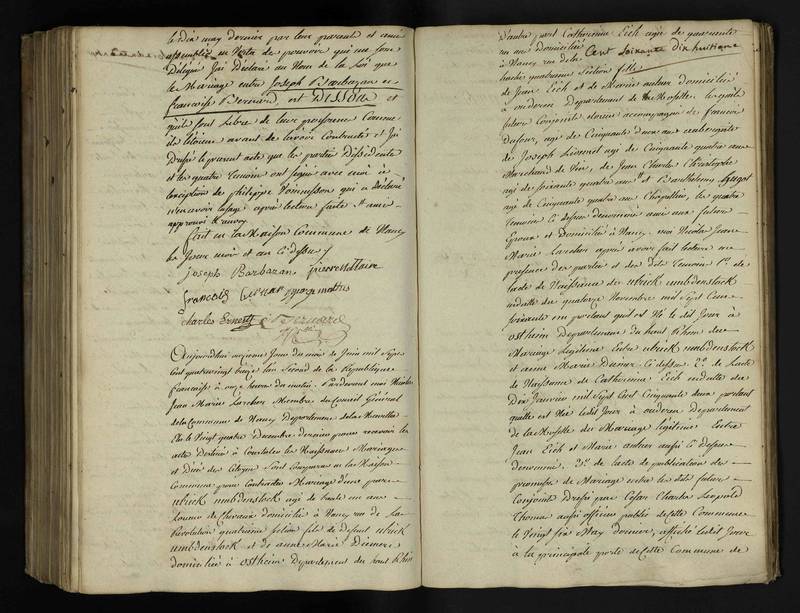 le dix may dernier par leurs parents et amis
assemblés en vertu de pouvoir qui me sont
Délégués J'ai Déclaré au Nom de la Loi que
le Mariage entre Joseph Barbazan et
françoise Bernard, est DISSOUS et
qu'ils sont libres de leurs personnes Comme
ils l'étoient avant de l'avoir Contracté et J'ai
Dressé le présent acte que les parties
et les quatre Temoins ont signé avec moi à
l'exception de philippe Vonnesson qui a Déclaré
n'en avoir l'usage après lecture faite
approuvé
fait en la Maison Commune de Nancy
les Jour mois et an ci dessus
Joseph Barbazan pierre
françois george mattis
charles Ernest Bernard
Aujourdhui onzieme Jour du mois de Juin mil Sept
Cent quatrevingt treize l'an Second de la République
française à onze heures du matin. Pardevant moi Nicolas
Jean Marie Larcher Membre du Conseil Général
de la Commune de Nancy Département de la Meurthe
Elu le Vingt quatre Décembre dernier pour recevoir les
actes Destinés à Constater les Naissances Mariages
et Décès des Citoyens Sont Comparus en la Maison
Commune pour Contracter Mariage d'une part
ulrick umbdenstock agé de trente un ans
Loueur de chevaux domicilié à Nancy rue de la
Révolution quatrieme section fils de Defunt ulrick
umbdenstock et de anne Marie Diemer
domiciliée à ostheim Département du haut Rhin
D'autre part Catherine Eich agée de quarante
un ans Domiciliée
à Nancy rue de la Cent Soixante Dix huitieme
quatrieme Section fille
de Jean Eich et de Marie domicilié
à ouderen Département de la Moselle lesquels
futurs Conjoints étoient accompagnés de francois
Dufour, agé de Cinquante deux ans aubergiste
de Joseph agé de Cinquante quatre ans
Marchand de Vin, de Jean Charle Christophe
agé de soixante quatre ans et Barthelemy
agé de Cinquante quatre ans Chapellier, les quatre
Temoins ci dessus denommés amis aux futurs
Epoux et Domiciliés à Nancy. moi Nicolas Jean
Marie Larcher après avoir fait lecture en
presence des parties et des dits Temoins 1.° de
l'acte de Naissance de ulrick umbdenstock
en datte du quatorze Novembre mil Sept Cent
soixante un portant qu'il est Né le dit Jour à
ostheim Departement du haut Rhin du
Mariage Légitime Entre ulrick umbdenstock
et anne Marie Diemer ci dessus 2.° de l'acte
de Naissance de Catherine Eich en datte du
Dix Janvier mil Sept Cent Cinquante deux portant
quelle est Née ledit Jour à ouderen Département
de la Moselle du Mariage légitime Entre
Jean Eich et Marie aussi ci Dessus
denommés. 3.° de l'acte de publication de
promesse de Mariage entre les dits futurs
Conjoints Dressé par César Charles Léopold
Thomas aussi officier public de Cette Commune
le Vingt Six May dernier, affiché ledit Jour
à la principale porte de Cette Commune de